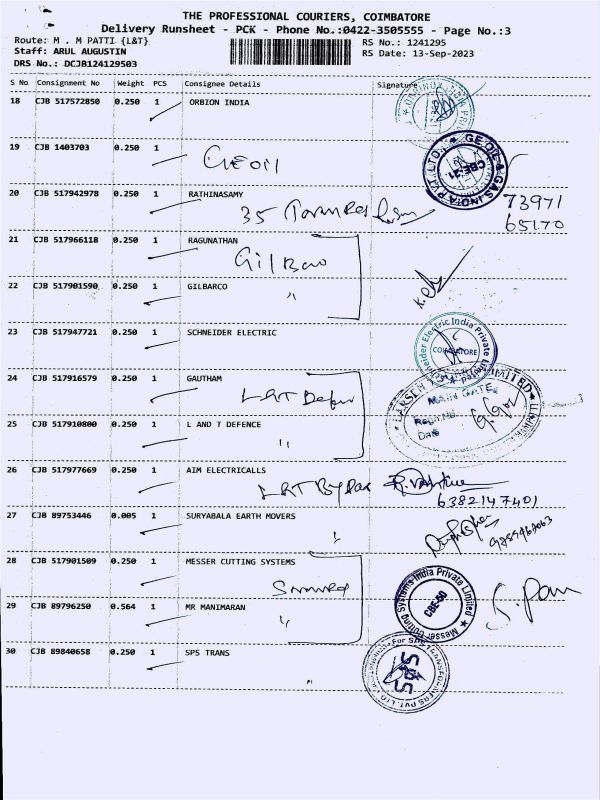 THE PROFESSIONAL COURIERS, COIMBATORE
Delivery Runsheet - PCK - Phone No.:0422-3505555 - Page No.:3
Route: M . M PATTI {L&T} RS No.: 1241295
Staff: ARUL AUGUSTIN RS Date: 13-Sep-2023
DRS No.: DCJB124129503
S No Consignment No Weight PCS Consignee Details Signature
18 CJB 517572850 0.250 1 ORBION INDIA
19 CJB 1403703 0.250 1
GE OIL
GE OIL & GAS INDIA PVT. LTD.
CBE-21
20 CJB 517942978 0.250 1 RATHINASAMY
35
73971
65170
21 CJB 517966118 0.250 1 RAGUNATHAN
Gilbarco
22 CJB 517901590 0.250 1 GILBARCO
"
23 CJB 517947721 0.250 1 SCHNEIDER ELECTRIC
Schneider Electric India Private Limited
COIMBATORE
24 CJB 517916579 0.250 1 GAUTHAM
L&T Defence
LARSEN LIMITED
MAIN GATE
Regn.No
Date
25 CJB 517910800 0.250 1 L AND T DEFENCE
"
26 CJB 517977669 0.250 1 AIM ELECTRICALLS
L&T Bypass
6382147401
27 CJB 89753446 0.005 1 SURYABALA EARTH MOVERS
28 CJB 517901509 0.250 1 MESSER CUTTING SYSTEMS
Messer Cutting Systems India Private Limited
CBE-50
29 CJB 89796250 0.564 1 MR MANIMARAN
"
30 CJB 89840658 0.250 1 SPS TRANS
For SPS TRANSFORMERS PVT. LTD
SPS